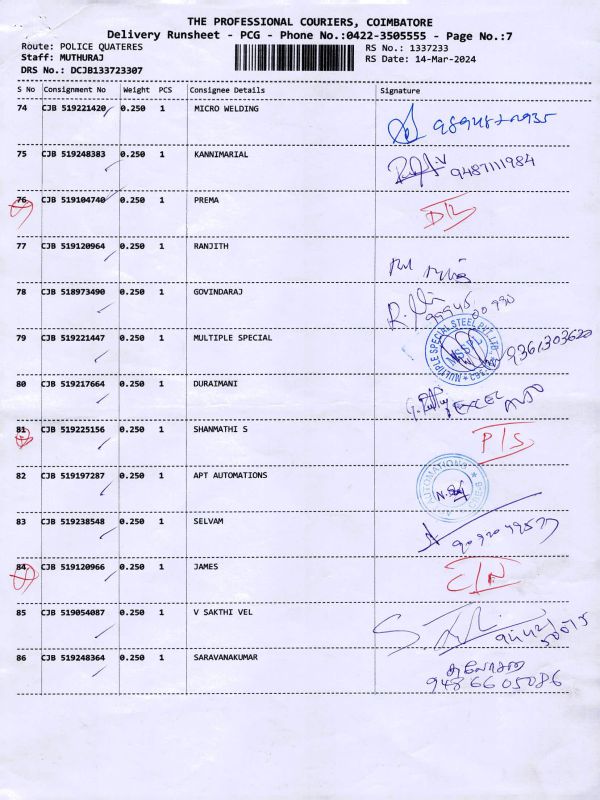 THE PROFESSIONAL COURIERS, COIMBATORE
Delivery Runsheet - PCG - Phone No.:0422-3505555 - Page No.:7
Route: POLICE QUATERES RS No.: 1337233
Staff: MUTHURAJ RS Date: 14-Mar-2024
DRS No.: DCJB133723307
S No Consignment No Weight PCS Consignee Details Signature
74 CJB 519221420 0.250 1 MICRO WELDING
75 CJB 519248383 0.250 1 KANNIMARIAL 9487111984
76 CJB 519104740 0.250 1 PREMA D/L
77 CJB 519120964 0.250 1 RANJITH
78 CJB 518973490 0.250 1 GOVINDARAJ
79 CJB 519221447 0.250 1 MULTIPLE SPECIAL MULTIPLE SPECIAL STEEL PVT. LTD. MSSPL 9361303620
80 CJB 519217664 0.250 1 DURAIMANI EXCEL AUTO
81 CJB 519225156 0.250 1 SHANMATHI S P/S
82 CJB 519197287 0.250 1 APT AUTOMATIONS AUTOMATIONS
83 CJB 519238548 0.250 1 SELVAM
84 CJB 519120966 0.250 1 JAMES C/N
85 CJB 519054087 0.250 1 V SAKTHI VEL
86 CJB 519248364 0.250 1 SARAVANAKUMAR
9486605086